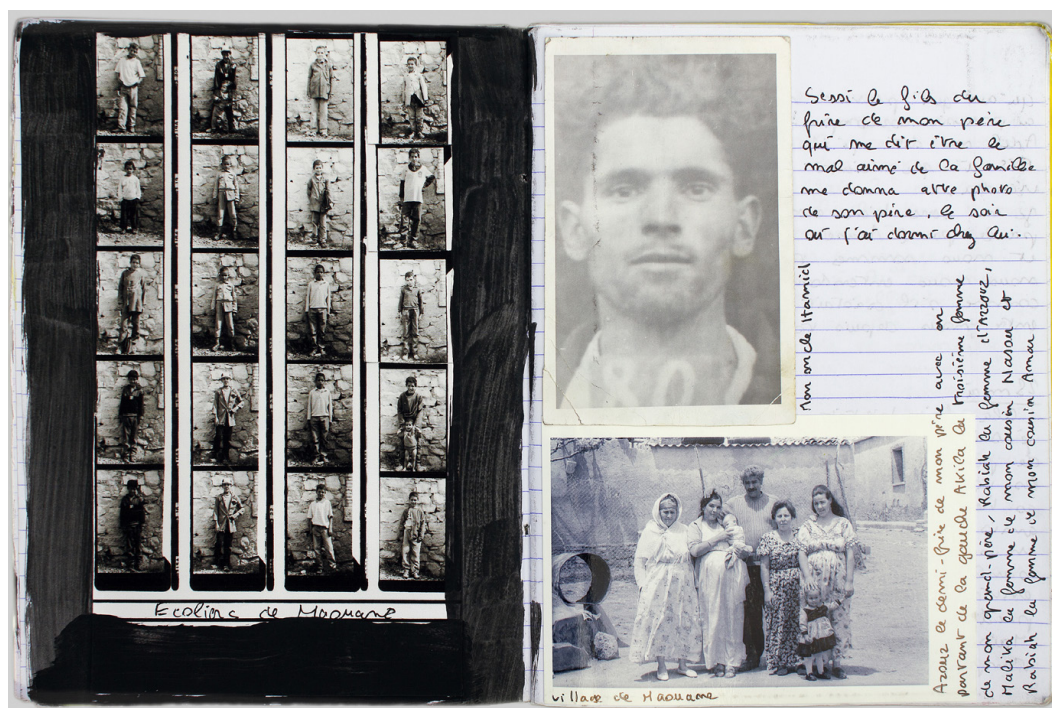 Ecoliers de Maouane
Sessi le fils du
frère de mon père
qui me dit être le
mal aimé de la famille
me donna cette photo
de son père, le soir
où j'ai dormi chez lui..
Mon oncle Hamid
village de Maouane
Azouz le demi-frère de mon père avec en
partant de la gauche Akila la troisième femme
de mon grand-père, Rabiah la femme d'Azzouz,
Malika la femme de mon cousin Nasser et
Rabiah la femme de mon cousin Amar